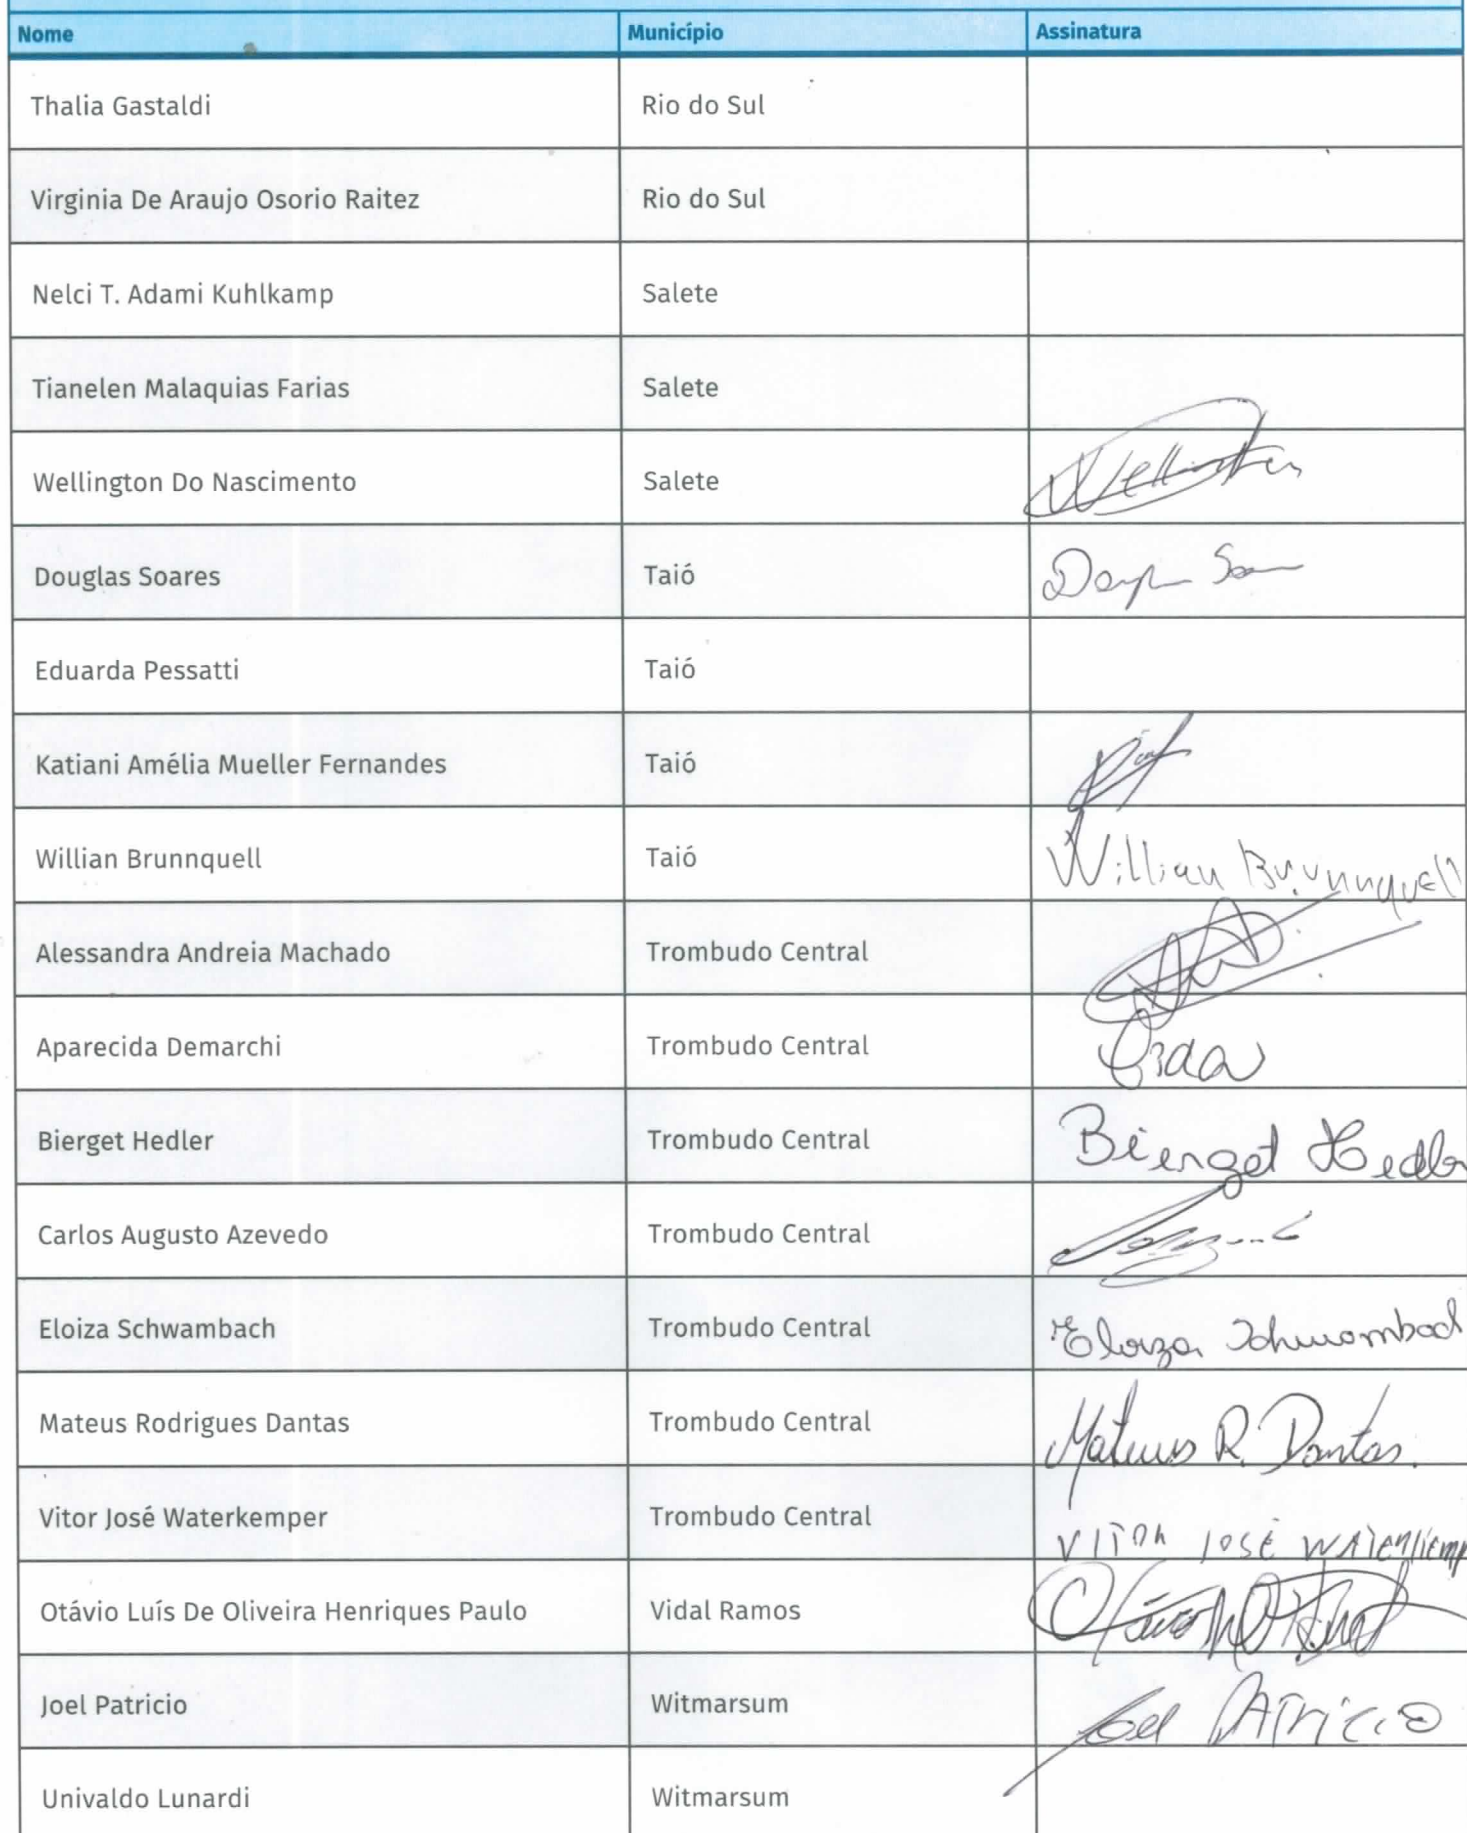 Nome Município Assinatura
Thalia Gastaldi Rio do Sul
Virginia De Araujo Osorio Raitez Rio do Sul
Nelci T. Adami Kuhlkamp Salete
Tianelen Malaquias Farias Salete
Wellington Do Nascimento Salete
Douglas Soares Taió
Eduarda Pessatti Taió
Katiani Amélia Mueller Fernandes Taió
Willian Brunnquell Taió Willian Brunnquell
Alessandra Andreia Machado Trombudo Central
Aparecida Demarchi Trombudo Central
Bierget Hedler Trombudo Central Bierget Hedler
Carlos Augusto Azevedo Trombudo Central
Eloiza Schwambach Trombudo Central Eloiza Schwambach
Mateus Rodrigues Dantas Trombudo Central Mateus R. Dantas.
Vitor José Waterkemper Trombudo Central VITOR JOSÉ WATERKEMP
Otávio Luís De Oliveira Henriques Paulo Vidal Ramos
Joel Patricio Witmarsum Joel PATRICIO
Univaldo Lunardi Witmarsum